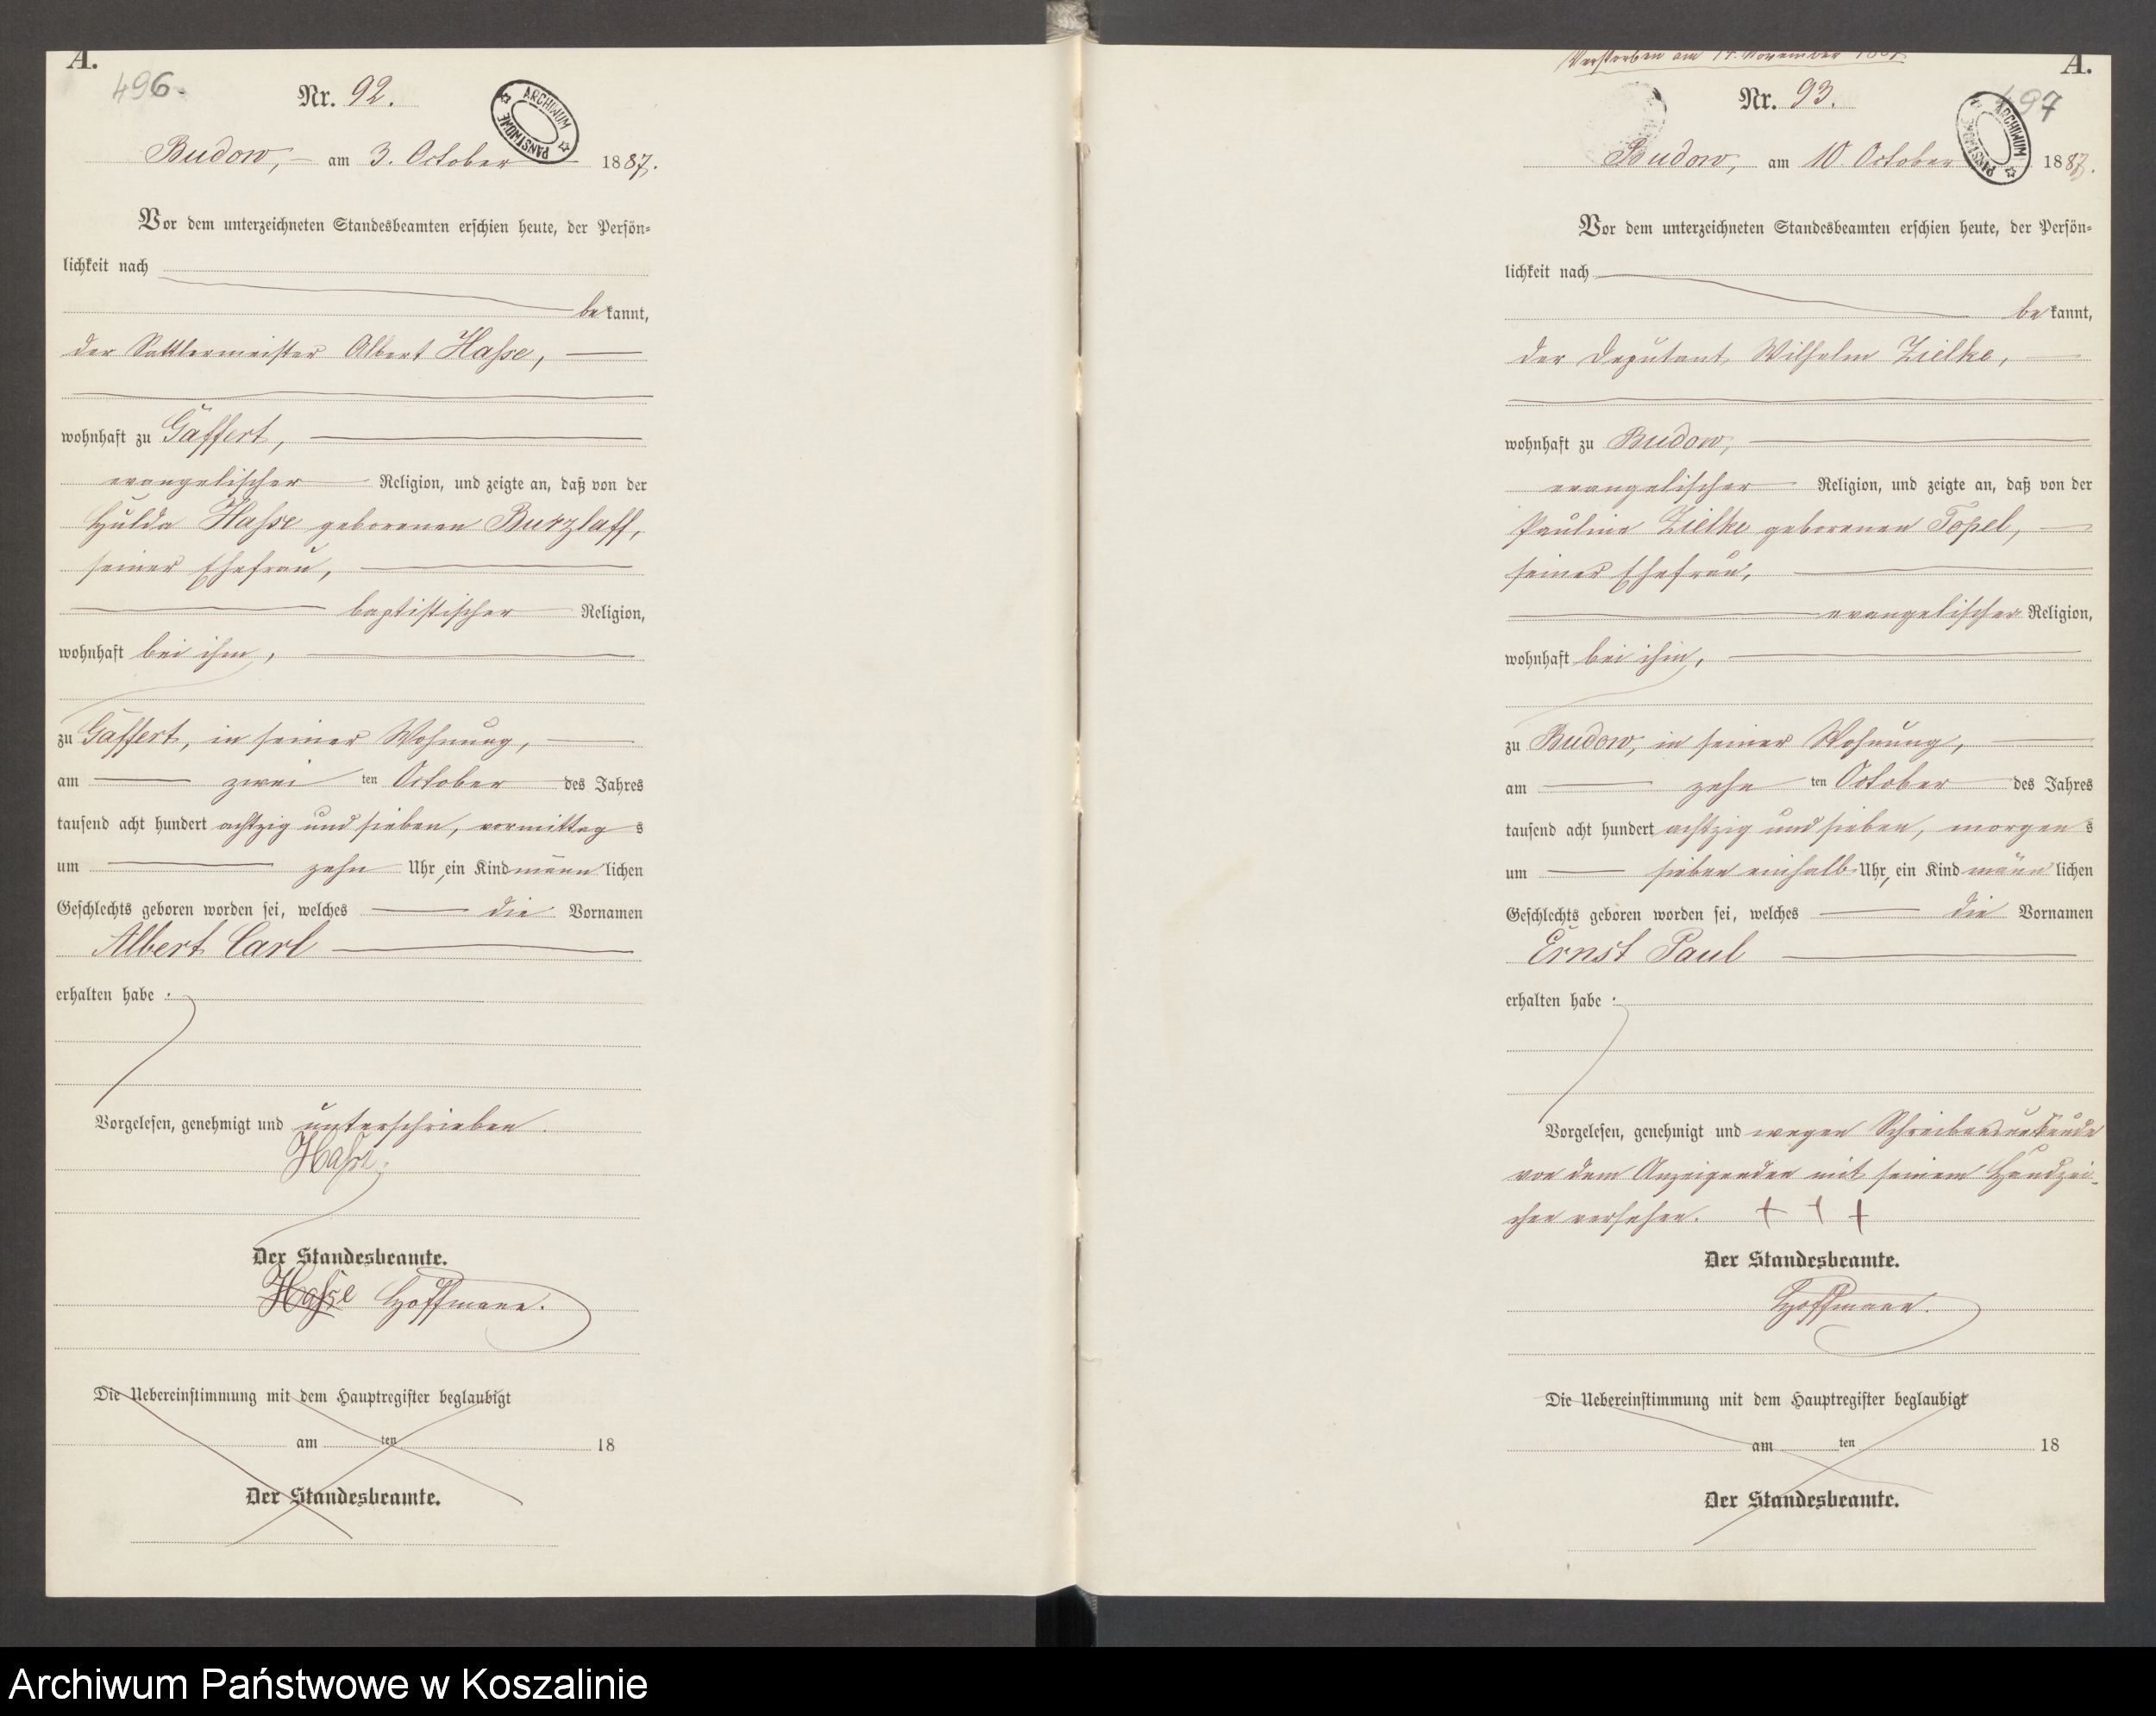 A.
496.
Nr. 92.
ARCHIWUM PAŃSTWOWE
Budow, am 3. October 1887.
Vor dem unterzeichneten Standesbeamten erschien heute, der Persön-
lichkeit nach
bekannt,
der Sattlermeister Albert Hasse,
wohnhaft zu Gaffert,
evangelischer Religion, und zeigte an, daß von der
Hulda Hasse geborenen Burzlaff,
seiner Ehefrau,
baptistischer Religion,
wohnhaft bei ihm,
zu Gaffert, in seiner Wohnung,
am zwei ten October des Jahres
tausend acht hundert achtzig und sieben, vormittags
um zehn Uhr, ein Kind männlichen
Geschlechts geboren worden sei, welches die Vornamen
Albert Carl
erhalten habe.
Vorgelesen, genehmigt und unterschrieben.
Hasse.
Der Standesbeamte.
Hasse Hoffmann.
Die Uebereinstimmung mit dem Hauptregister beglaubigt
am ten 18
Der Standesbeamte.
Verstorben am November
A.
497
Nr. 93.
ARCHIWUM PAŃSTWOWE
Budow, am 10. October 1887.
Vor dem unterzeichneten Standesbeamten erschien heute, der Persön-
lichkeit nach
bekannt,
der Deputant Wilhelm Zielke,
wohnhaft zu Budow,
evangelischer Religion, und zeigte an, daß von der
Pauline Zielke geborenen Topel,
seiner Ehefrau,
evangelischer Religion,
wohnhaft bei ihm,
zu Budow, in seiner Wohnung,
am zehn ten October des Jahres
tausend acht hundert achtzig und sieben, morgens
um sieben einhalb Uhr, ein Kind männlichen
Geschlechts geboren worden sei, welches die Vornamen
Ernst Paul
erhalten habe.
Vorgelesen, genehmigt und wegen Schreibensunkunde
von dem Anzeigenden mit seinem Handzei-
chen versehen. + + +
Der Standesbeamte.
Hoffmann.
Die Uebereinstimmung mit dem Hauptregister beglaubigt
am ten 18
Der Standesbeamte.
Archiwum Państwowe w Koszalinie